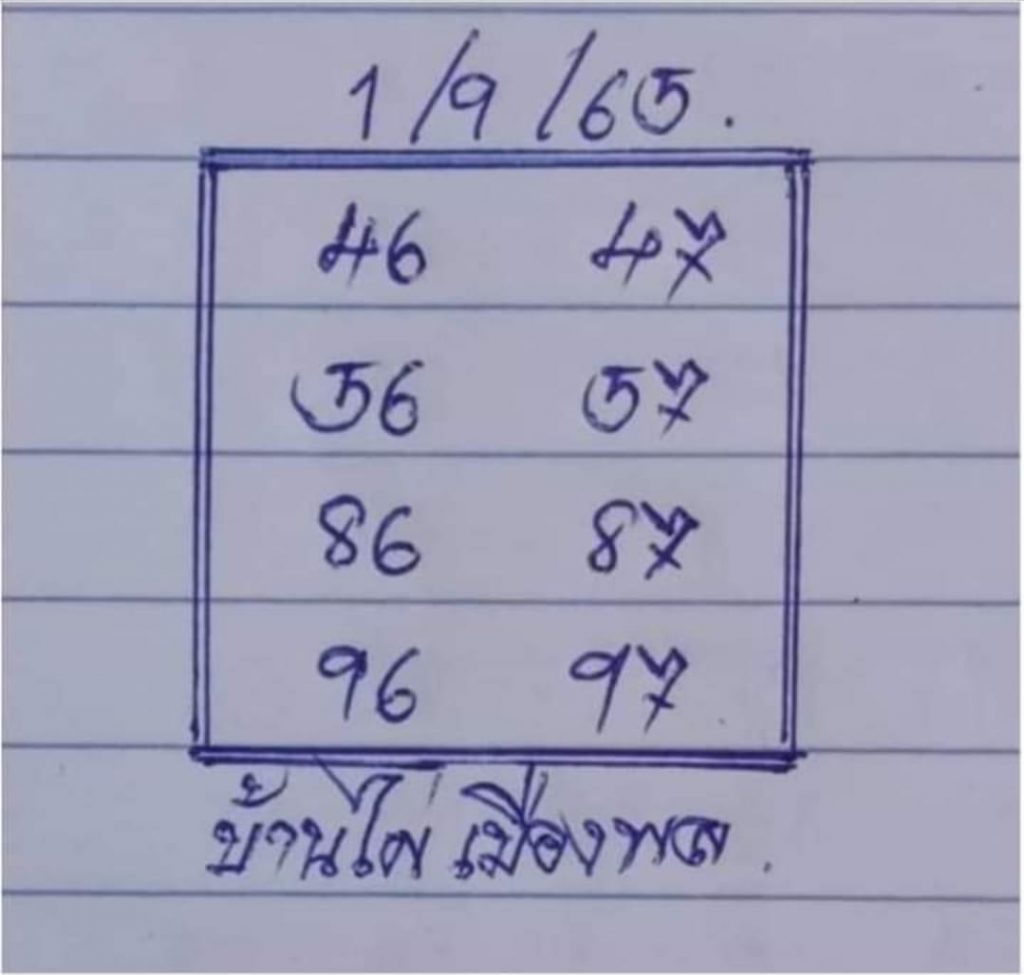 1/9/65.
46 47
56 57
86 87
96 97
บ้านไผ่ เมืองพล.